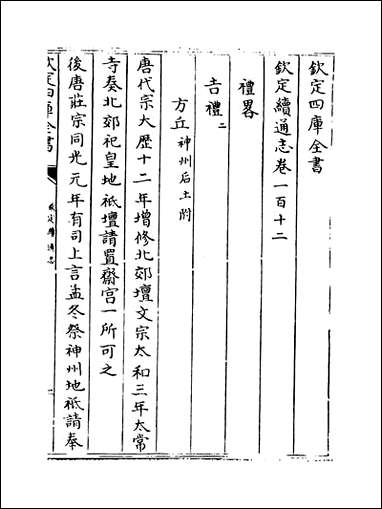 欽定四庫全書
欽定續通志卷一百十二
禮畧
吉禮二
方丘神州后土附
唐代宗大歷十二年增修北郊壇文宗太和三年太常
寺奏北郊祀皇地祇壇請置齋宫一所可之
後唐莊宗同光元年有司上言孟冬祭神州地祇請奉
欽定四庫全書
欽定續通志